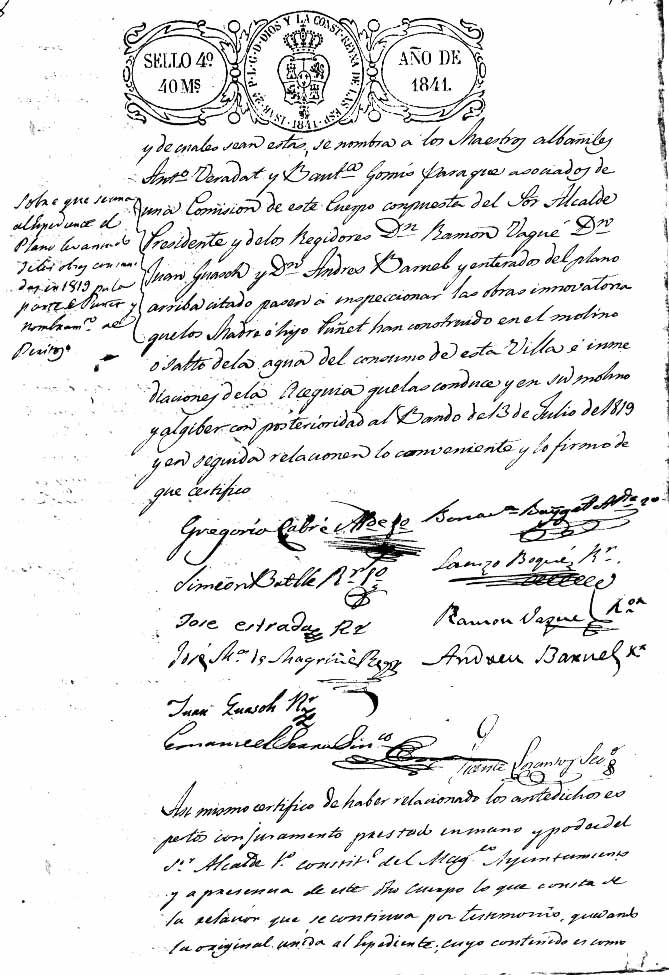 SELLO 4º
40 Ms
ISAB. 2ª P. L. G. D. DIOS Y LA CONST. REYNA DE LAS ESP. 1841
AÑO DE
1841.
y de cuales sean estas, se nombra a los Maestros albañiles
Antº Veradat y Bautª Gomis para que asociados de
una Comision de este Cuerpo compuesta del Sor Alcalde
Presidente y de los Regidores Dn Ramon Vaqué Dn
Juan Guasch y Dn Andres Barnel y enterados del plano
arriba citado pasen a inspeccionar las obras innovatoria
que los Madre é hijo Puñet han construido en el molino
ó salto de la agua del consumo de esta Villa é inme
diaciones de la Acequia que las conduce y en su molino
y algiber con posterioridad al Bando de 13 de Julio de 1819
y en seguida relacionen lo conveniente y lo firmo de
que certifico
Sobre que se una
al Espediente el
Plano levantado
de las obras
en 1819 por la
parte de Puñet y
nombramto de
Peritos
Gregorio Cabré Alde 1º
Simeon Batlle Rr 1º
Lorenzo Boqué Rr.
Jose estrada Rr
Ramon Vaque Ror
José
Andreu Barnel Rr
Juan Guasch Rr
Emanuel Sinco
Vicente Scoº
Asi mismo certifico de haber relacionado los antedichos es
petos con juramento prestado en mano y poder del
Sr Alcalde 1º constitl del Magco Ayuntamiento
y a presencia de este dho cuerpo lo que consta de
la relacion que se continua por testimonio, quedando
la original unida al Espediente, cuyo contenido es como